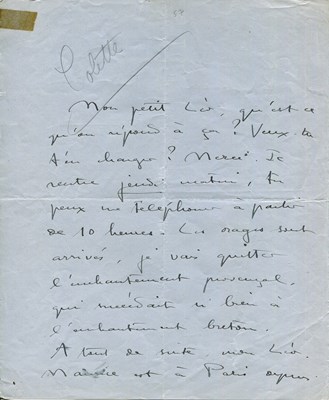 Colette
Mon petit Léo, qu'est-ce
qu'on répond à ça ? Veux-tu
t'en charger ? Merci. Je
rentre jeudi matin, tu
peux me téléphoner à partir
de 10 heures. Les orages sont
arrivés, je vais quitter
l'enchantement provençal,
qui succédait si bien à
l'enchantement breton.
A tout de suite, mon Léo.
est à Paris depuis